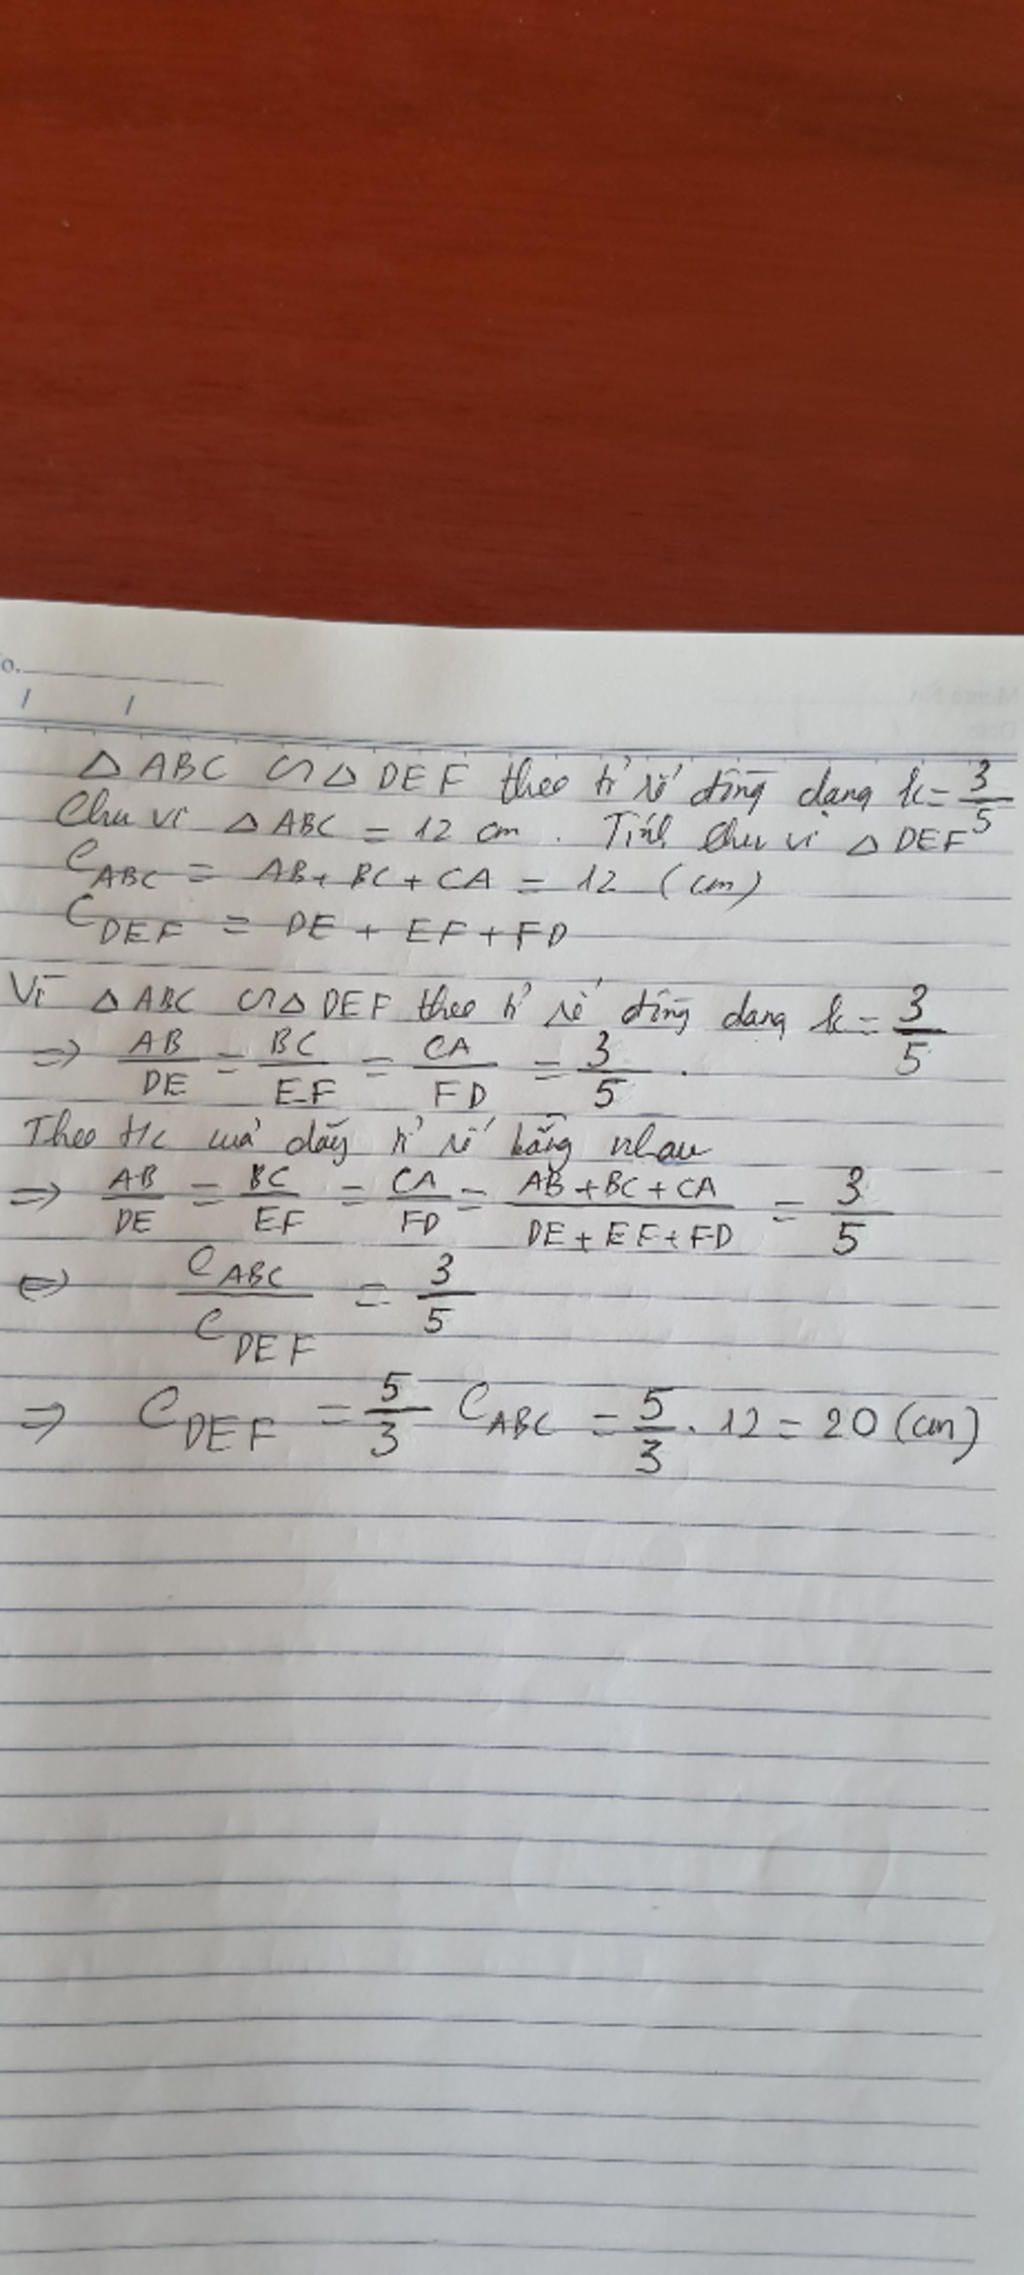 o.
/ /
△ABC ∽ △DEF theo tỉ số đồng dạng k = 3/5
Chu vi △ABC = 12 cm. Tính chu vi △DEF
C_ABC = AB + BC + CA = 12 (cm)
C_DEF = DE + EF + FD
Vì △ABC ∽ △DEF theo tỉ số đồng dạng k = 3/5
=> AB/DE = BC/EF = CA/FD = 3/5.
Theo t/c của dãy tỉ số bằng nhau
=> AB/DE = BC/EF = CA/FD = (AB + BC + CA)/(DE + EF + FD) = 3/5
<=> C_ABC/C_DEF = 3/5
=> C_DEF = 5/3 C_ABC = 5/3 . 12 = 20 (cm)